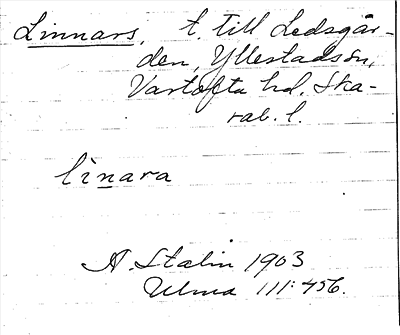 Linnars, t. till Ledsgår-
den, Yllestads sn,
Vartofta hd. Ska-
rab. l.
linara
A. Stalin 1903
Ulma 111:456.